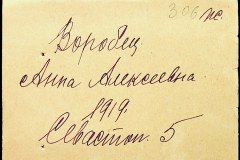 306 пс.
Воробец
Анна Алексеевна.
1919.
Севастоп. 5